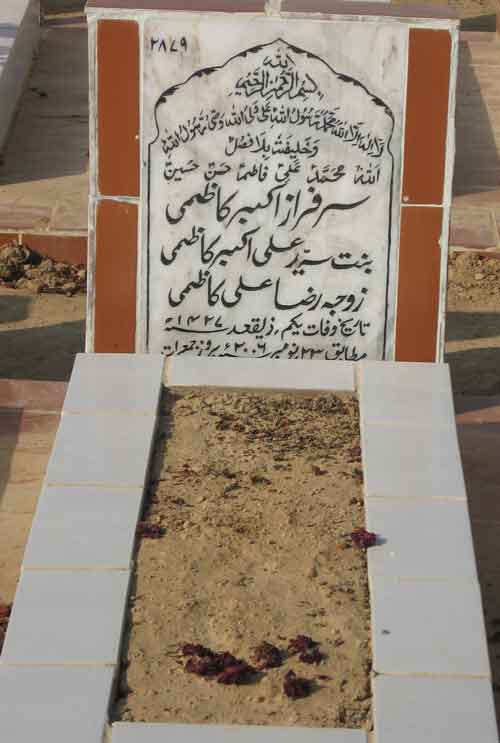 ۲۸۷۹
بسم اللہ الرحمن الرحیم
لا الہ الا اللہ محمد رسول اللہ علی ولی اللہ وصی رسول اللہ
وخلیفتہ بلا فصل
اللہ محمدؐ علیؑ فاطمہؑ حسنؑ حسینؑ
سرفراز اکبر کاظمی
بنت سید علی اکبر کاظمی
زوجہ رضا علی کاظمی
تاریخ وفات یکم؍ ذیقعد ۱۴۲۷ھ
مطابق ۲۳ نومبر ۲۰۰۶ء بروز جمعرات